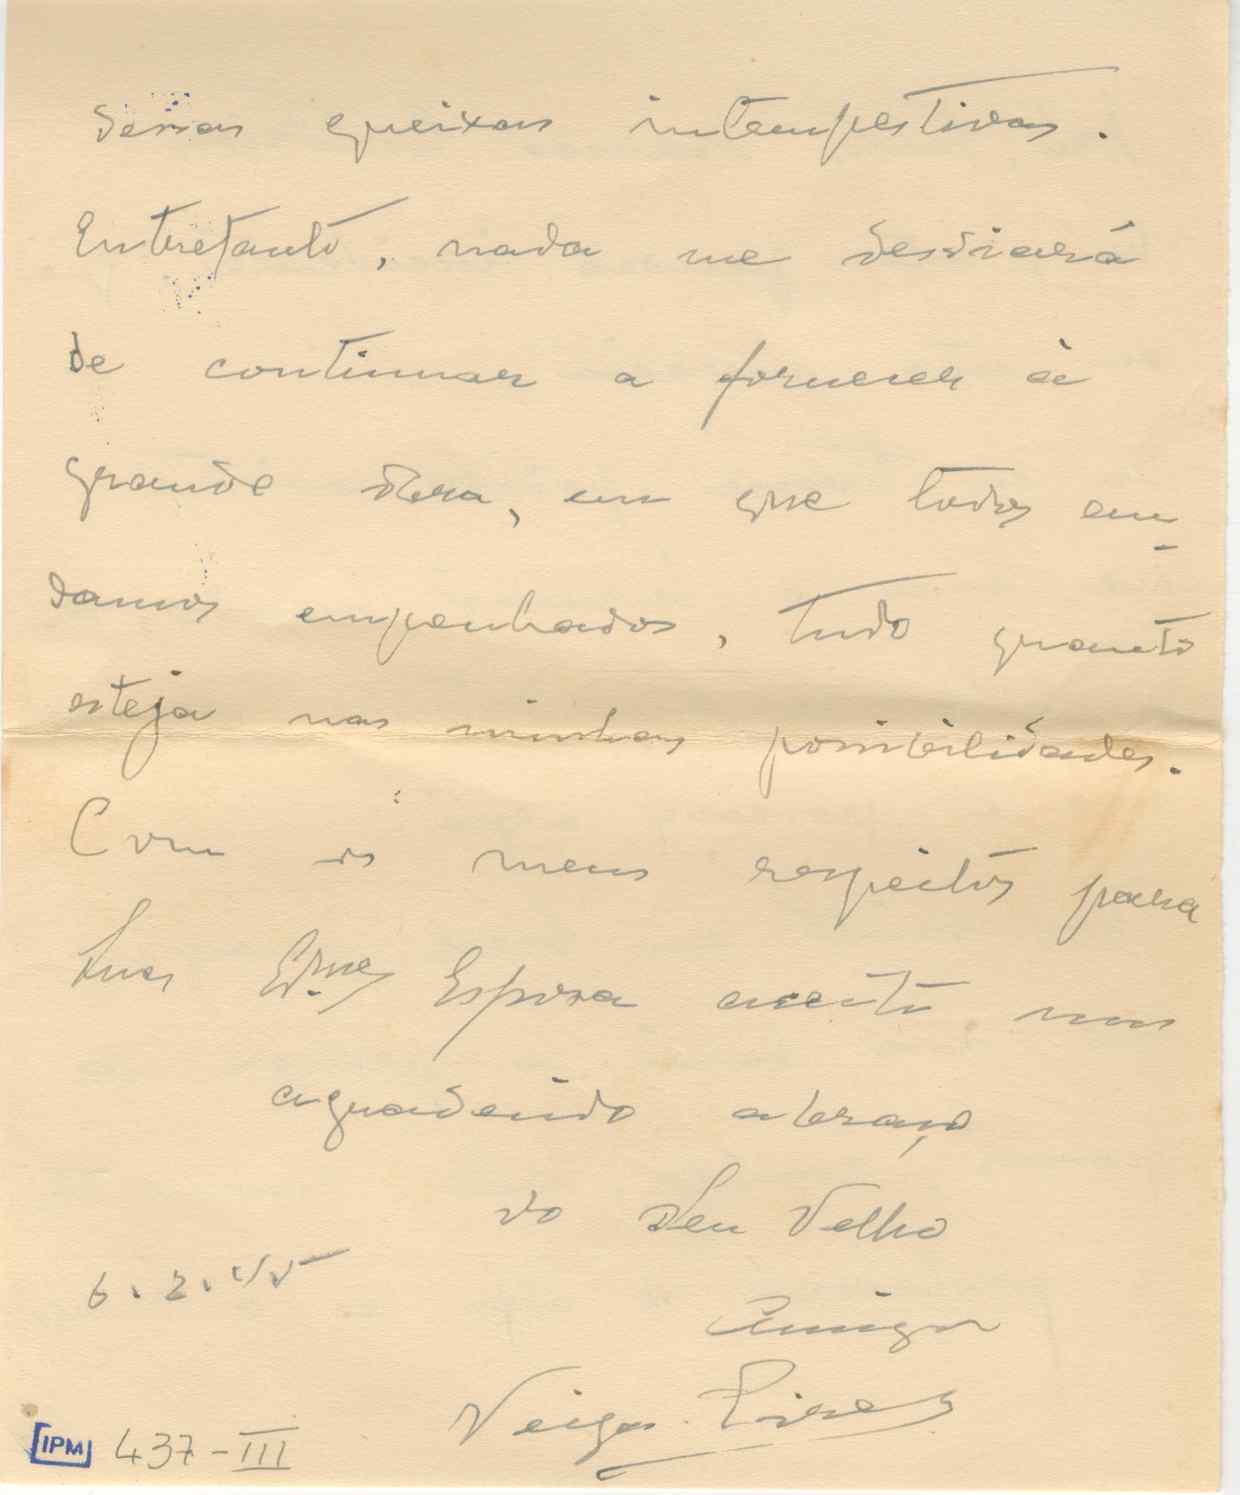 dessas queixas intempestivas.
Entretanto, nada me desviará
de continuar a fornecer à
grande Obra, em que todos an-
damos empenhados, tudo quanto
esteja nas minhas possibilidades.
Com os meus respeitos para
Sua Exma Esposa aceite um
agradecido abraço
do Seu Velho
Amigo
6.2.45
Veiga Pires
IPM 437-III